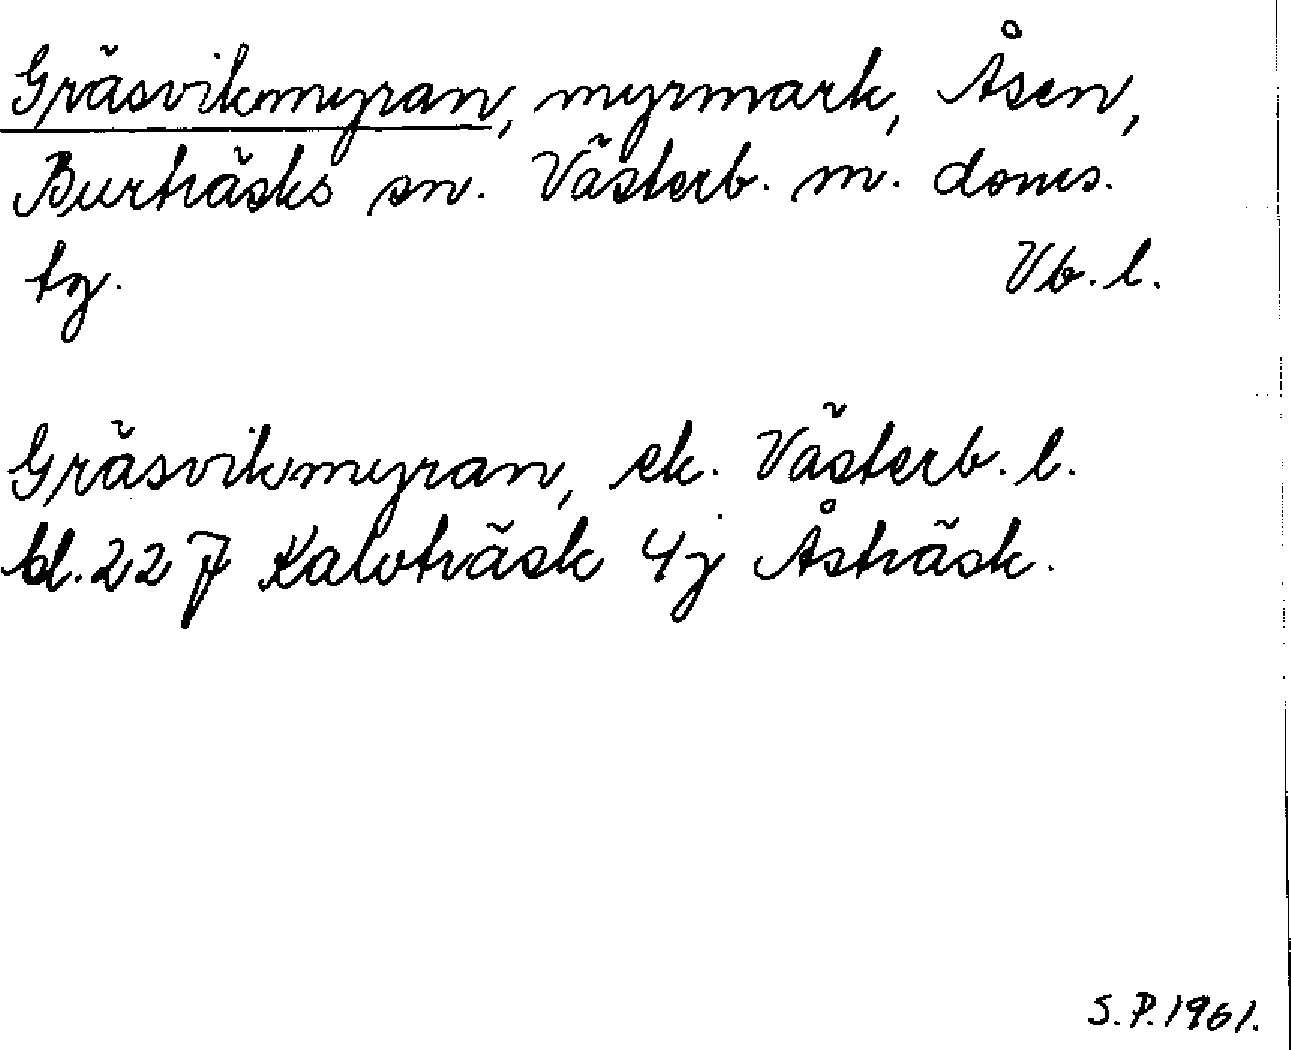 Gräsvikmyran, myrmark, Åsen,
Burträsks sn. Västerb. m. doms.
tg. Vb. l.
Gräsvikmyran, ek. Västerb. l.
bl. 22 J Kalvträsk 4j Åsträsk.
S.P. 1961.